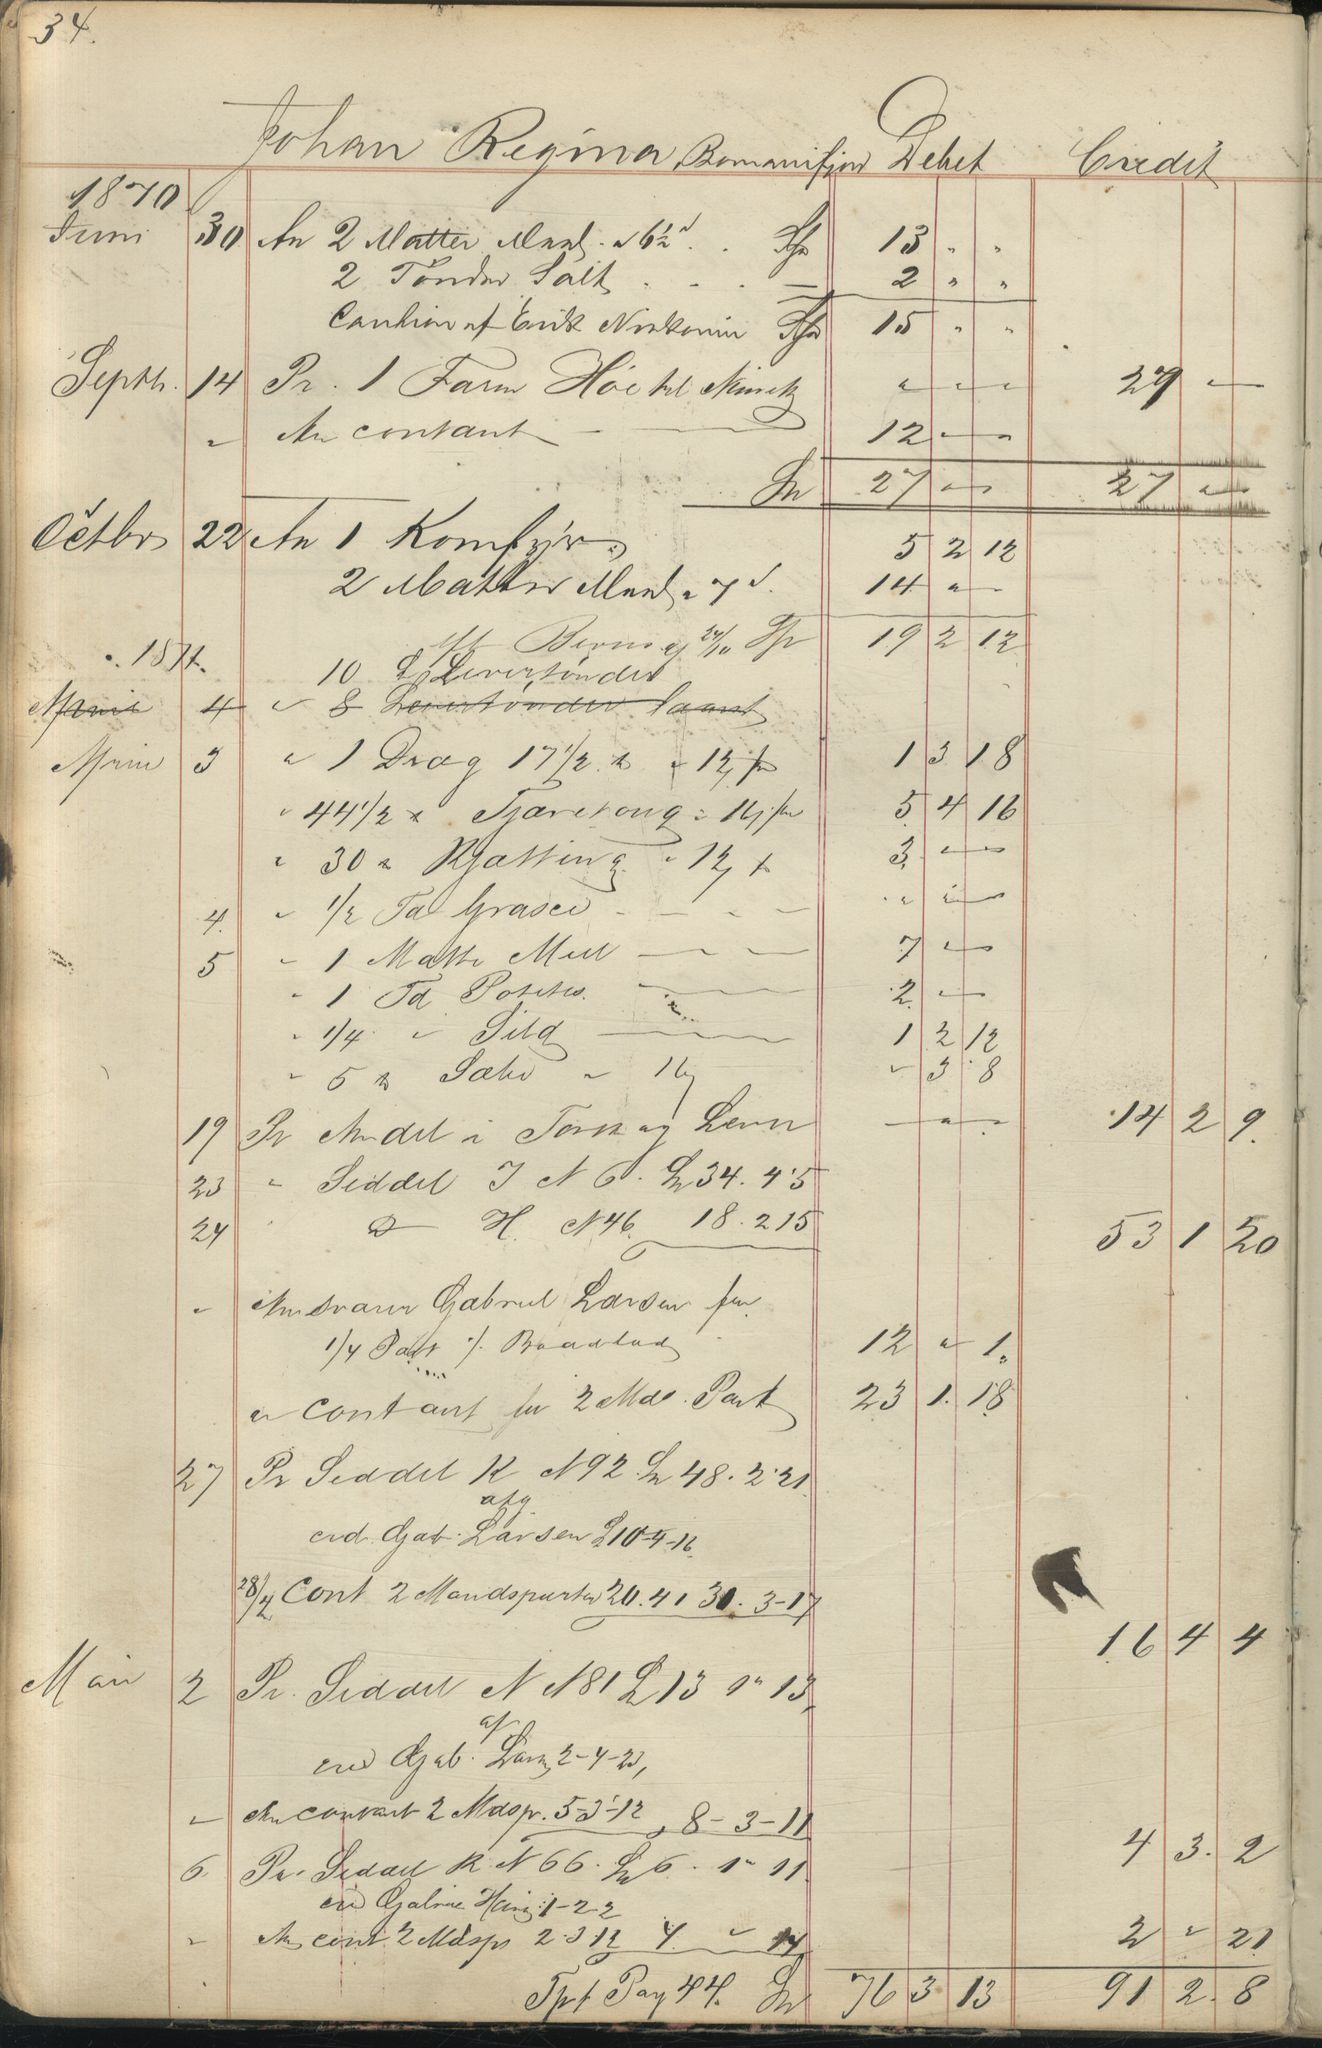 34.
Johan Regina Bomanifjord Debet Credit
1870
Juni 30 An 2 Matter Meel a 6½ d . . Spd 13 " "
2 Tønder Salt . . . — 2 " "
Caution af Erik Spd 15 " "
Septbr. 14 Pr. 1 Farm Høe til " — — 27 —
" An contant — — 12 " —
Sp 27 " — 27 " —
Octbr 22 An 1 Komfyr 5 2 12
2 Matter Meel a 7 d. 14 " —
24/10 Sp 19 2 12
1871.
10 L Levertønder
April 4 " 8 Levertønder laant
April 3 " 1 Drag 17 1/2 a 12 1 3 18
" 44 1/2 Tjæretoug a 16 5 4 16
" 30 Kjætting a 12 3 " —
4. " 1/2 Td Grasei - - - — " " —
5 " 1 Matte Meel — — — 7 " —
" 1 Td Potetes. — — 2 " —
" 1/4 " Sild — — 1 2 12
" 5 Sæbe a 16 " 3 8
19 Pr Andel i Torsk og Lever — " — 14 2 9.
23 " Seddel I N 6. Sp 34. 4 5
24 " D H. N 46. 18. 2 15 53 1 20
" An svarer Gabriel Larsen for
1/4 Part 12 " 1
" contant for 2 Mds. Part 23 1. 18
27 Pr Seddel K N 92. Sp 48. 2 21
afg
Gab. Larsen 10-4-16
28/4 Cont 2 Mandsparter 20. 4 1 31. 3-17
16 4 4
Mai 2 Pr. Seddel N N 81 13 " 13
af
Gab. Lars 2-4-23,
" An contant 2 Mdsp. 5-3-12 8-3-11
4 3. 2
6. Pr. Seddel R N 66. Sp 6. " 11
1-2 2
" An cont 2 Mdsp 2 3 12 4. " 14 2 " 21
Tpt Pag 44. Sp 76 3 13 91 2. 8